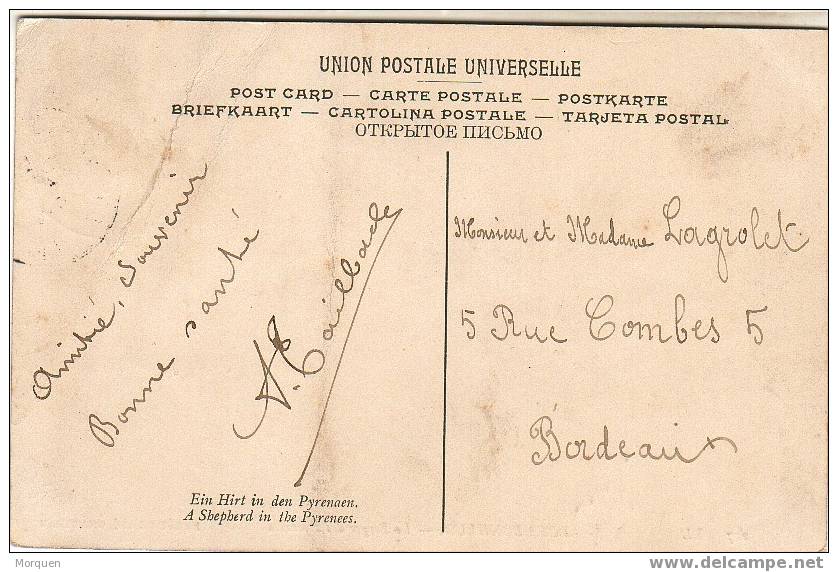 UNION POSTALE UNIVERSELLE
POST CARD — CARTE POSTALE — POSTKARTE
BRIEFKAART — CARTOLINA POSTALE — TARJETA POSTAL
ОТКРЫТОЕ ПИСЬМО
Amitié, Souvenir
Bonne santé
Monsieur et Madame Lagrolet
5 Rue Combes 5
Bordeaux
Ein Hirt in den Pyrenaen.
A Shepherd in the Pyrenees.
Morquen
delcampe.net